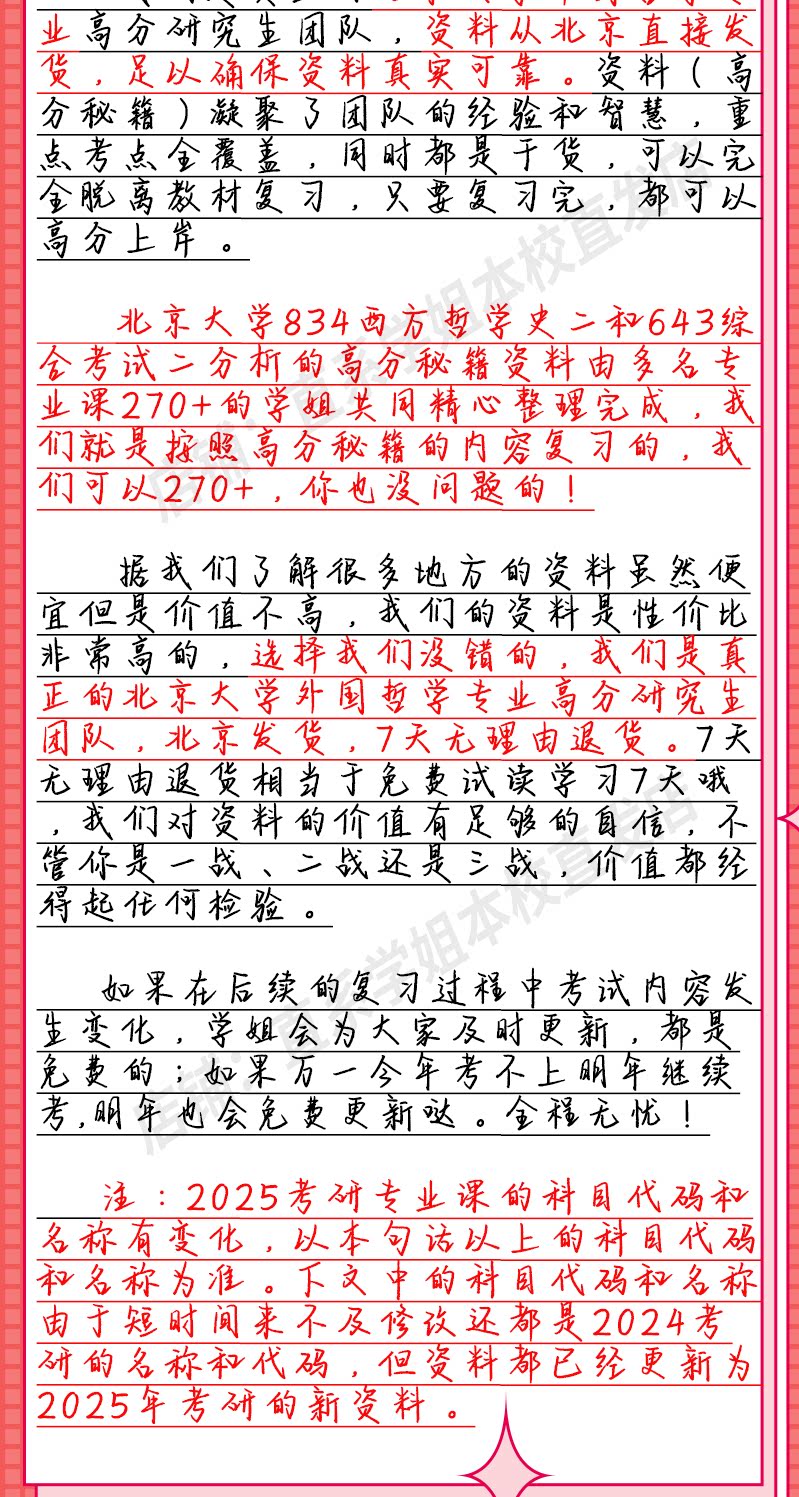 业高分研究生团队，资料从北京直接发
货，足以确保资料真实可靠。资料（高
分秘籍）凝聚了团队的经验和智慧，重
点考点全覆盖，同时都是干货，可以完
全脱离教材复习，只要复习完，都可以
高分上岸。
北京大学834西方哲学史二和643综
合考试二分析的高分秘籍资料由多名专
业课270+的学姐共同精心整理完成，我
们就是按照高分秘籍的内容复习的，我
们可以270+，你也没问题的！
据我们了解很多地方的资料虽然便
宜但是价值不高，我们的资料是性价比
非常高的，选择我们没错的，我们是真
正的北京大学外国哲学专业高分研究生
团队，北京发货，7天无理由退货。7天
无理由退货相当于免费试读学习7天哦
，我们对资料的价值有足够的自信，不
管你是一战、二战还是三战，价值都经
得起任何检验。
如果在后续的复习过程中考试内容发
生变化，学姐会为大家及时更新，都是
免费的；如果万一今年考不上明年继续
考,明年也会免费更新哒。全程无忧！
注：2025考研专业课的科目代码和
名称有变化，以本句话以上的科目代码
和名称为准。下文中的科目代码和名称
由于短时间来不及修改还都是2024考
研的名称和代码，但资料都已经更新为
2025年考研的新资料。
店铺：直系学姐本校直发店
店铺：直系学姐本校直发店